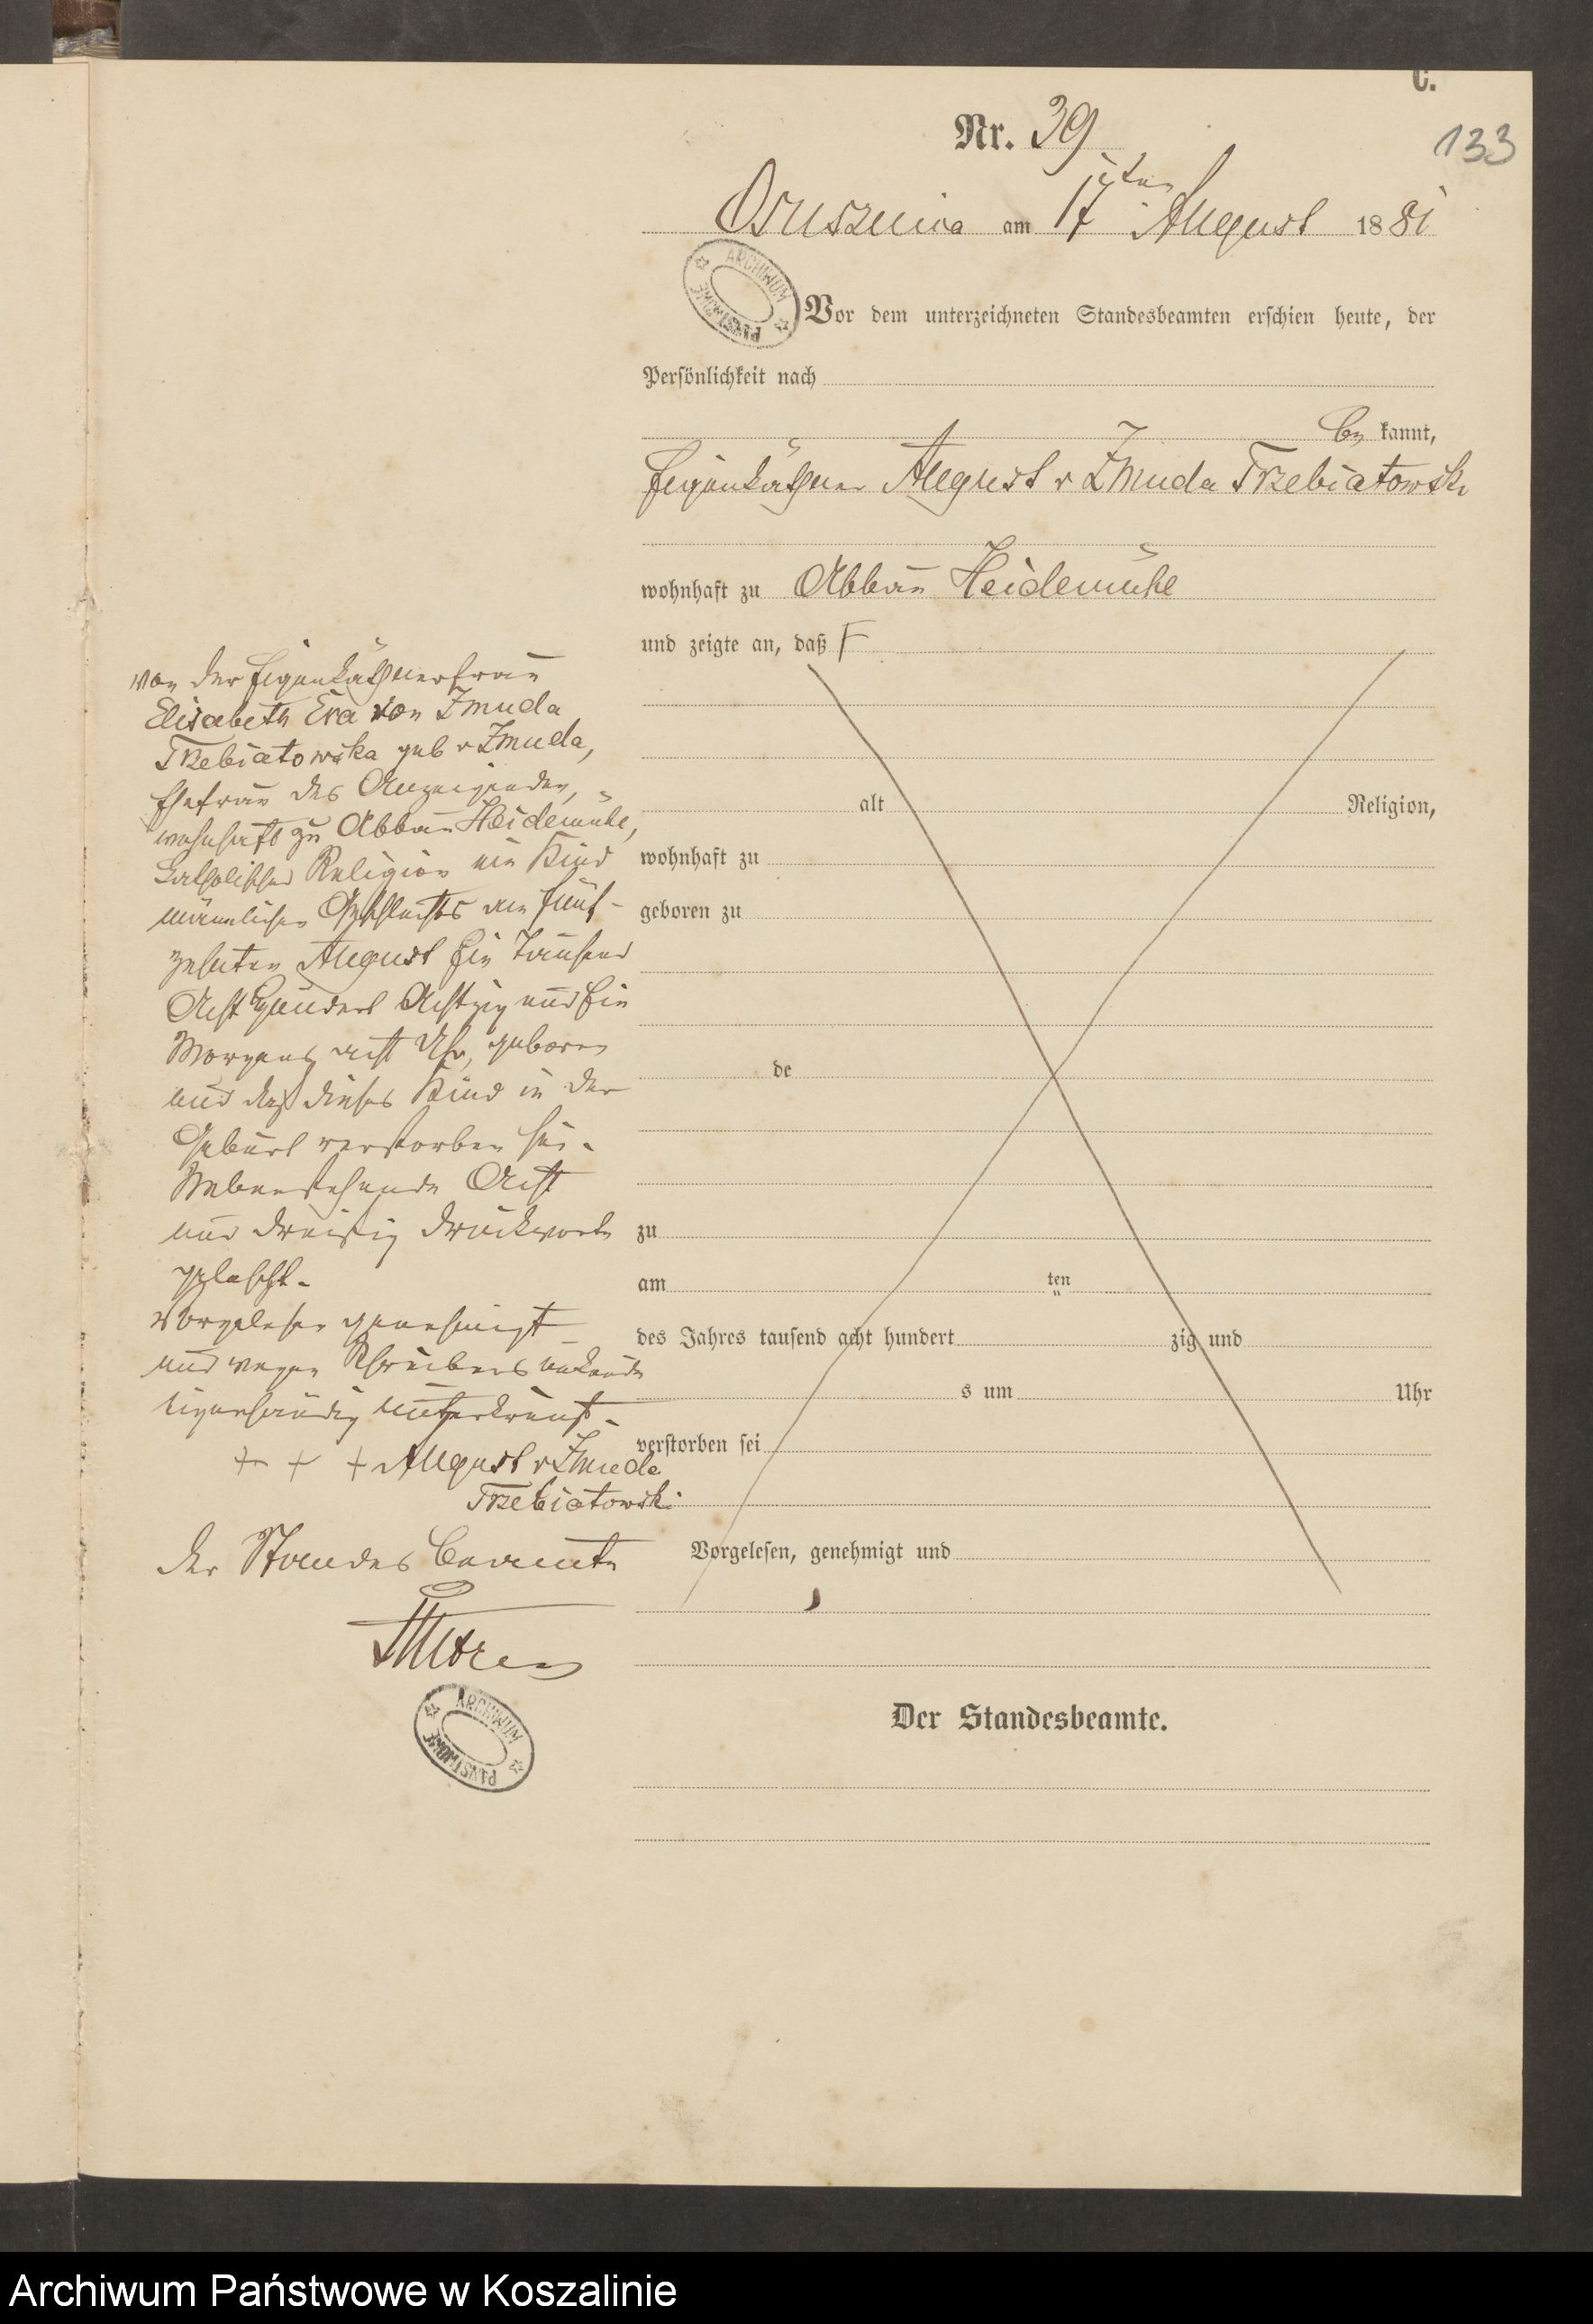 C.
Nr. 39
133
Osusznica am 17ten August 1881
ARCHIWUM PAŃSTWOWE
Vor dem unterzeichneten Standesbeamten erschien heute, der
Persönlichkeit nach
be kannt,
Eigenkäthner August v Zmuda Trzebiatowski
wohnhaft zu Abbau Heidemühl
und zeigte an, daß
alt Religion,
wohnhaft zu
geboren zu
de
zu
am ten
des Jahres tausend acht hundert zig und
s um Uhr
verstorben sei
Vorgelesen, genehmigt und
Der Standesbeamte.
von der Eigenkäthnerfrau
Elisabeth Eva von Zmuda
Trzebiatowska geb v Zmuda,
Ehefrau des Anzeigenden,
wohnhaft zu Abbau Heidemühl,
katholischer Religion ein Kind
männlichen Geschlechts am fünf-
zehnten August Ein Tausend
Acht Hundert Achtzig und Ein
Morgens acht Uhr, geboren
und daß dieses Kind in der
Geburt verstorben sei.
Nebenstehende Acht
und dreißig Druckworte
gelöscht.
Vorgelesen genehmigt
und wegen Schreibens unkunde
eigenhändig unterkreuzt.
+ + + August v Zmuda
Trzebiatowski
Der Standes Beamte
ARCHIWUM PAŃSTWOWE
Archiwum Państwowe w Koszalinie